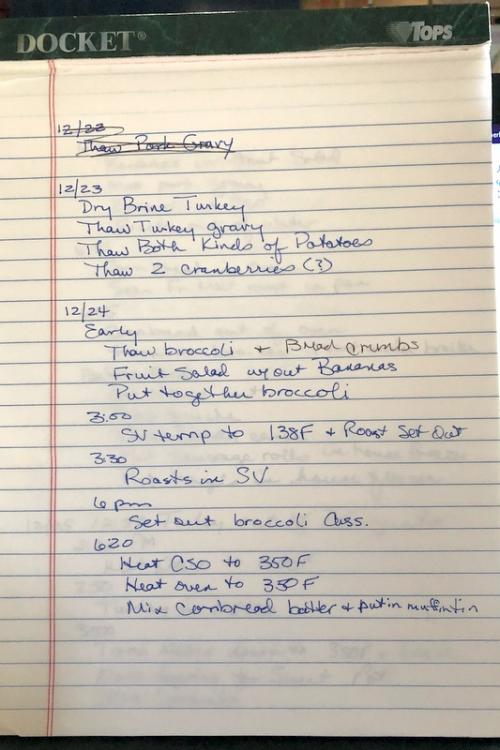 DOCKET® TOPS
12/23
Thaw Pork Gravy
12/23
Dry Brine Turkey
Thaw Turkey gravy
Thaw Both Kinds of Potatoes
Thaw 2 cranberries (?)
12/24
Early
Thaw broccoli + Bread crumbs
Fruit Salad w/out Bananas
Put together broccoli
3:00
SV temp to 138F + Roast Set Out
3:30
Roasts in SV
6 pm
Set out broccoli Cass.
620
Heat CSO to 350F
Heat oven to 350F
Mix Cornbread batter + put in muffin tin